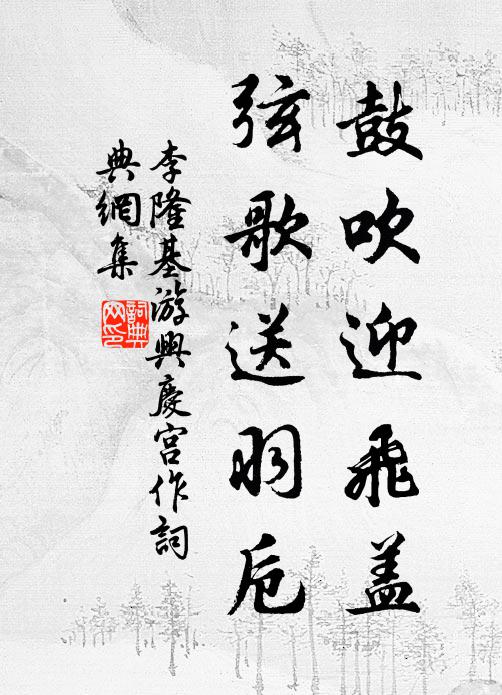 鼓吹迎飛盖
弦歌送羽卮
李隆基游興慶宮作詞
典網集
詞典網印